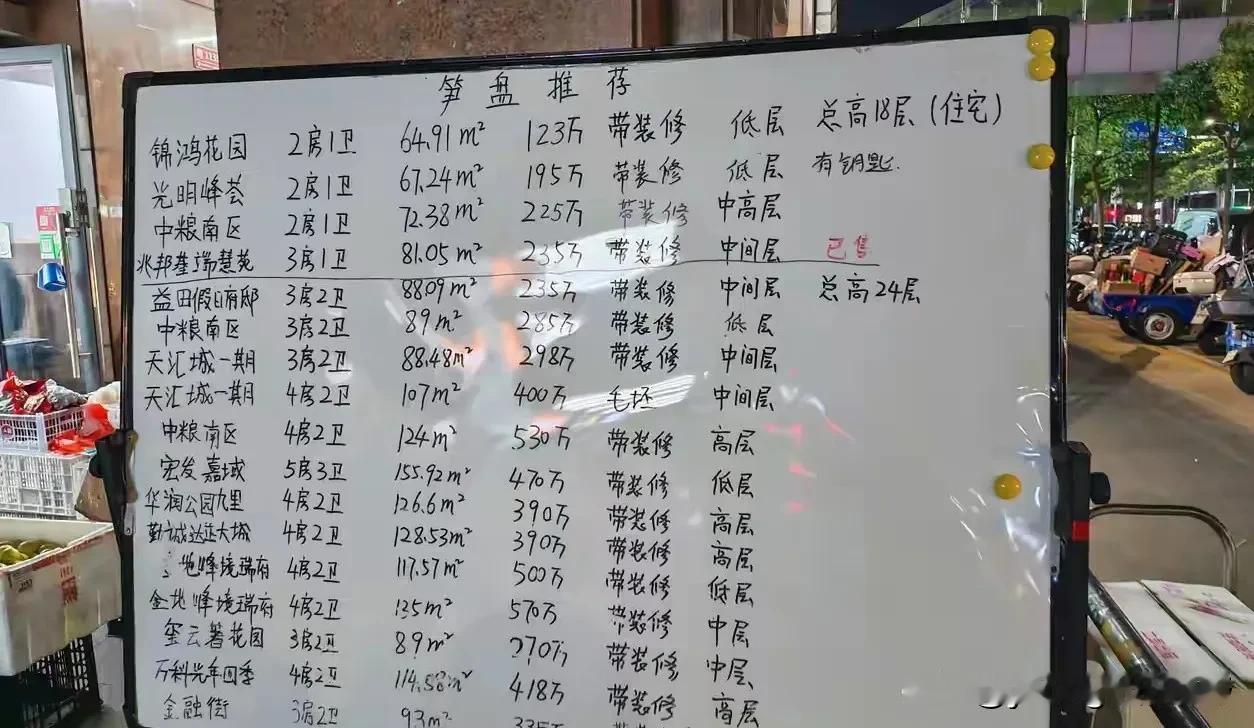 笋盘推荐
锦鸿花园 2房1卫 64.91m² 123万 带装修 低层 总高18层(住宅)
光明峰荟 2房1卫 67.24m² 195万 带装修 低层 有钥匙.
中粮南区 2房1卫 72.38m² 225万 带装修 中高层
兆邦基端慧苑 3房1卫 81.05m² 235万 带装修 中间层 已售
益田假日府邸 3房2卫 88.09m² 235万 带装修 中间层 总高24层
中粮南区 3房2卫 89m² 285万 带装修 低层
天汇城一期 3房2卫 88.48m² 298万 带装修 中间层
天汇城一期 4房2卫 107m² 400万 毛坯 中间层
中粮南区 4房2卫 124m² 530万 带装修 高层
宏发嘉域 5房3卫 155.92m² 470万 带装修 低层
华润公园九里 4房2卫 126.6m² 390万 带装修 高层
勤诚达正大城 4房2卫 128.53m² 390万 带装修 高层
地峰境瑞府 4房2卫 117.57m² 500万 带装修 低层
金地峰境瑞府 4房2卫 135m² 570万 带装修 中层
玺云著花园 3房2卫 89m² 270万 带装修 中层
万科光年四季 4房2卫 114.58m² 418万 带装修 高层
金融街 3房2卫 93m²